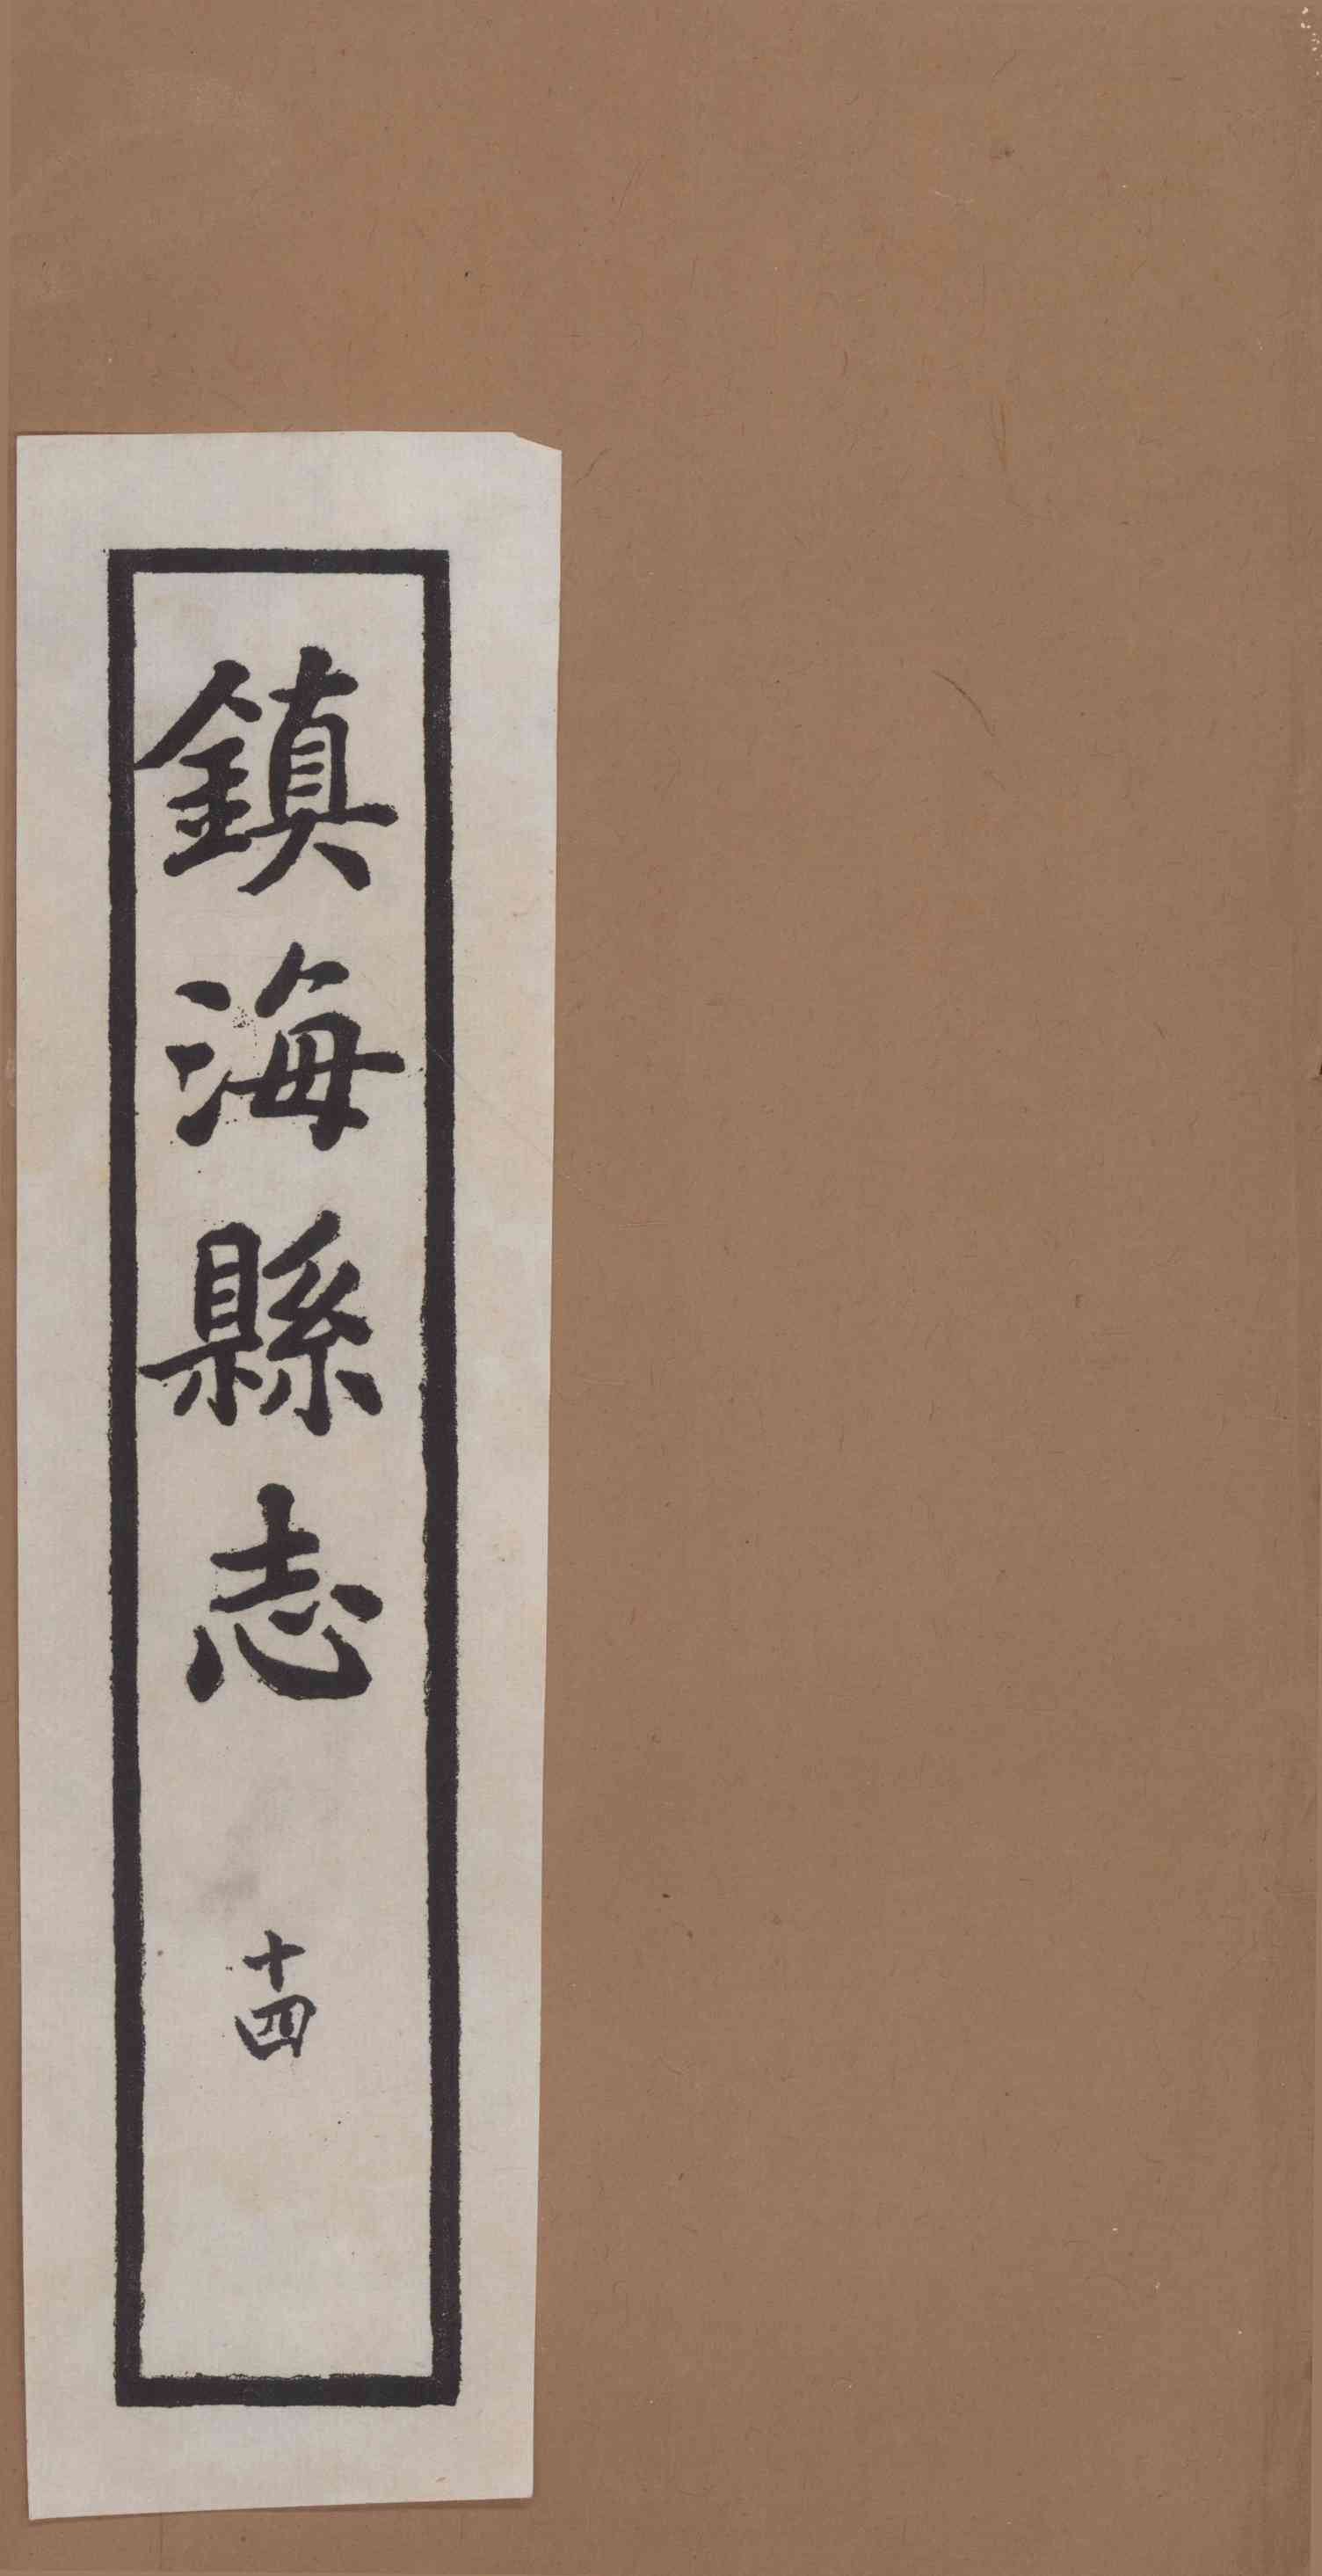 鎮海縣志
十四